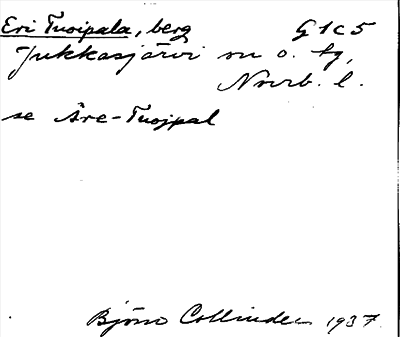 Eri Tuoipala, berg G1c5
Jukkasjärvi sn o. tg,
Norrb. l.
se Äre-Tuojpal
Björn Collinder 1937.